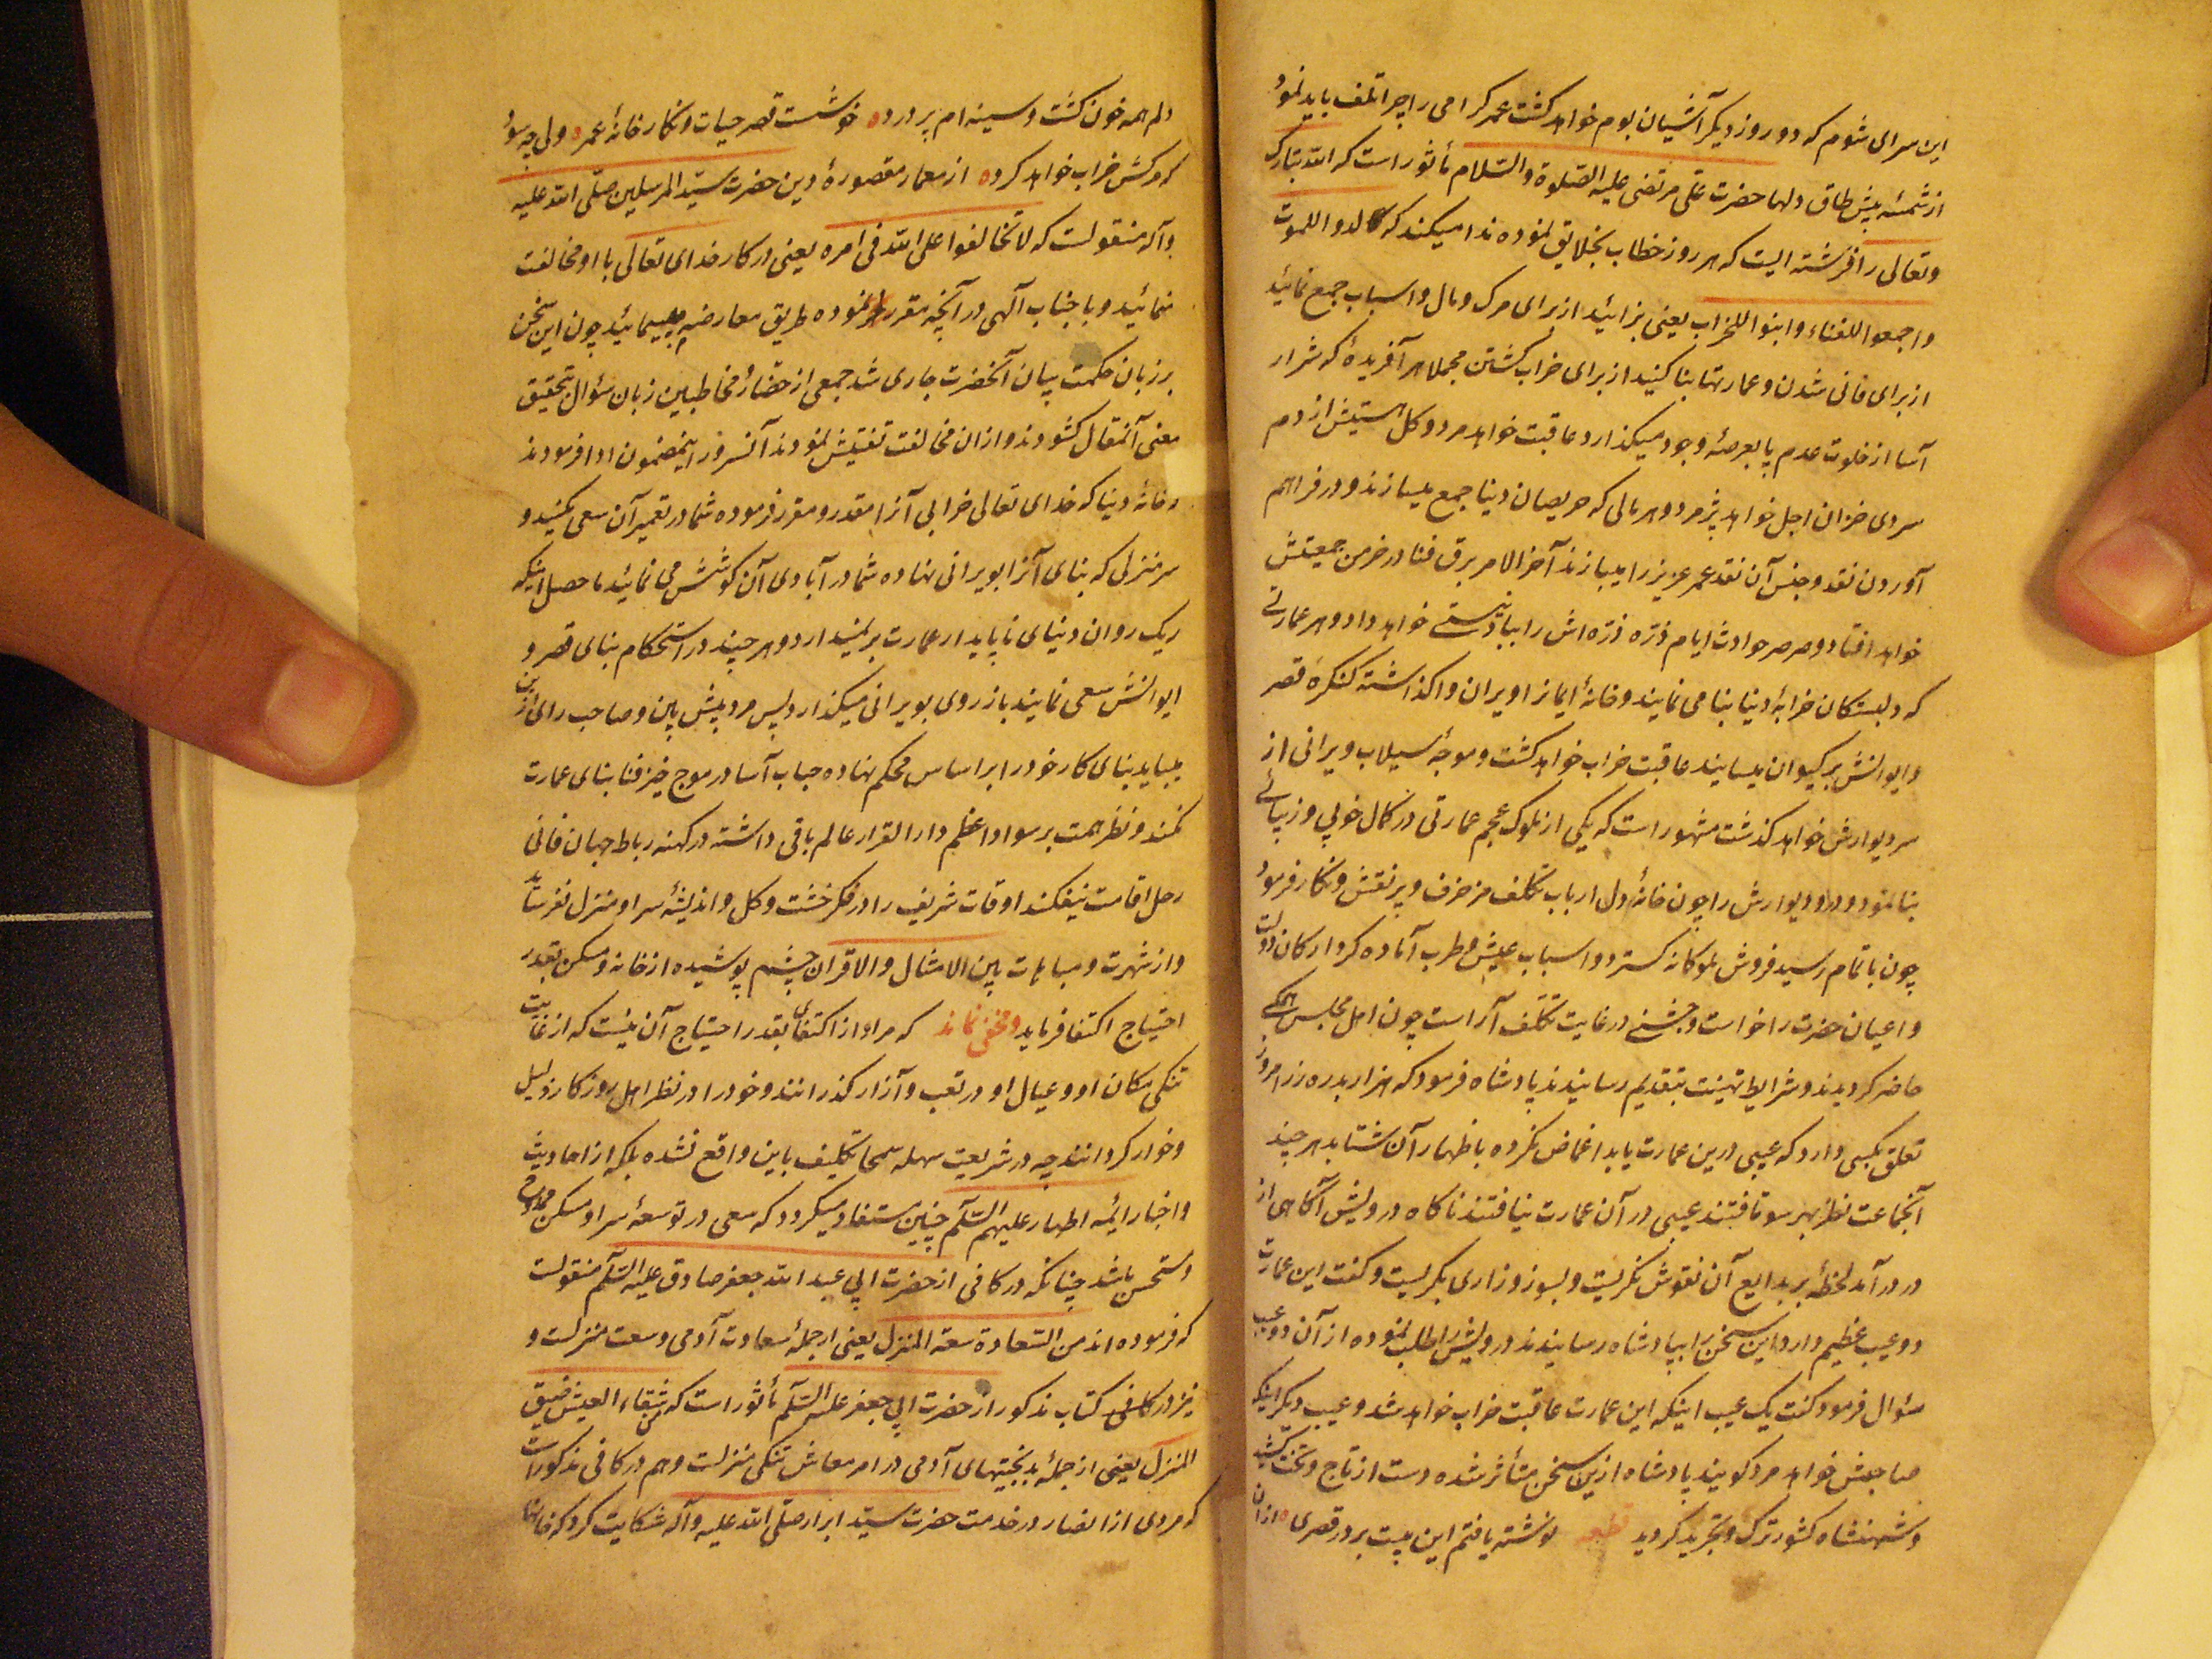 این سرای شوم که دو روز دیگر آشیان بوم خواهد گشت عمر گرامی را چرا تلف باید نمود
از شمسه پیش طاق دلها حضرت علی مرتضی علیه الصلوة والسلام مأثور است که الله تبارک
وتعالی را فرشته ایست که هر روز خطاب بخلایق نموده ندا میکند که لدوا للموت
واجمعوا للفناء وابنوا للخراب یعنی بزائید از برای مرک ومال واسباب جمع نمائید
از برای فانی شدن وعمارتها بنا کنید از برای خراب کشتن مجملا هر آفریدۀ که شرار
آسا از خلوت عدم پا بعرصۀ وجود میکذارد عاقبت خواهد مرد وکل هستیش از دم
سردی خزان اجل خواهد پژمرد وهر مالی که حریصان دنیا جمع میسازند ودر فراهم
آوردن نقد وجنس آن نقد عمر عزیز را میبازند آخر الامر برق فنا در خرمن جمعیتش
خواهد افتاد وصرصر حوادث ایام ذره ذره اش را بباد نیستی خواهد داد وهر عمارتی
که دلبستکان خرابۀ دنیا بنا می نمایند وخانۀ ایمانرا ویران واکذاشته کنکرۀ قصر
وایوانش بر کیوان میسایند عاقبت خراب خواهد کشت وموجۀ سیلاب ویرانی از
سر دیوارش خواهد کذشت مشهور است که یکی از ملوک عجم عمارتی در کمال خوبی وزیبائی
بنا نمود ودر ودیوارش را چون خانۀ دل ارباب تکلف مزخرف وپر نقش ونکار فرمود
چون باتمام رسید فروش ملوکانه کسترد واسباب عیش وطرب آماده کرد ارکان دولت
واعیان حضرت را خواست وجشنی در غایت تکلف آراست چون اهل مجلس همکی
حاضر کردیدند وشرایط تهنیت بتقدیم رسانیدند پادشاه فرمود که هزار بدره زر امروز
تعلق بکسی دارد که عیبی درین عمارت یابد اغماض نکرده باظهار آن شتابد هر چند
آنجماعت نظر بهر سو تافتند عیبی در آن عمارت نیافتند ناکاه درویش آکاهی از
در درآمد لحظۀ بر بدایع آن نقوش نکریست وبسوز وزاری بکریست وکفت این عمارت
دو عیب عظیم دارد این سخن را بپادشاه رسانیدند درویش را طلب نموده از آن دو عیب
سؤال فرمود کفت یک عیب اینکه این عمارت عاقبت خراب خواهد شد وعیب دیکر اینکه
صاحبش خواهد مرد کویند پادشاه ازین سخن متأثر شده دست از تاج وتخت کشید
وشهنشاه کشور ترک وتجرید کردید قطعه نوشته یافتم این بیت بر در قصری ه از آن
دلم همه خون کشت وسینه ام پر درد ه خوشست قصر حیات ونکارخانۀ عمر ه ولی چه سود
که مرکش خراب خواهد کرد ه از معمار مقصورۀ دین حضرت سید المرسلین صلی الله علیه
وآله منقولست که لا تخالفوا علی الله فی امره یعنی در کار خدای تعالی با او مخالفت
منمائید وبا جناب آلهی در آنچه مقرر نموده طریق معارضه مپیمائید چون این سخن
بر زبان حکمت بیان آنحضرت جاری شد جمعی از حضار ومخاطبین زبان سؤال بتحقیق
معنی آنمقال کشودند وازان مخالفت تفتیش نمودند آنسرور اینمضمون ادا فرمودند
خانۀ دنیا که خدای تعالی خرابی آنرا مقدر ومقرر فرموده شما در تعمیر آن سعی میکنید و
سر منزلی که بنای آنرا بویرانی نهاده شما در آبادی آن کوشش می نمائید ماحصل اینکه
ریک روان دنیای ناپایدار عمارت بر نمیدارد وهر چند در استحکام بنای قصر و
ایوانش سعی نمایند باز روی بویرانی میکذارد پس مرد پیش بین وصاحب رای رزین
میباید بنای کار خود را بر اساس محکم نهاده حباب آسا در موج خیز فنا بنای عمارت
نکند ونظر همت بر سواد اعظم دار القرار عالم باقی داشته در کهنه رباط جهان فانی
رحل اقامت نیفکند اوقات شریف را در فکر خشت وکل واندیشۀ سرا ومنزل نفرساید
واز شهرت ومباهات بین الامثال والاقران چشم پوشیده از خانه ومسکن بقدر
احتیاج اکتفا فرماید ومخفی نماند که مراد از اکتفای بقدر احتیاج آن نیست که از غایت
تنکی مکان او وعیال او در تعب وآزار کذرانند وخود را در نظر اهل روزکار ذلیل
وخوار کردانند چه در شریعت سهلۀ سمحا تکلیف باین واقع نشده بلکه از احادیث
واخبار ایمه اطهار علیهم السلام چنین مستفاد میکردد که سعی در توسعۀ سرا ومسکن ممدوح
ومستحسن باشد چنانکه در کافی از حضرت ابی عبد الله جعفر صادق علیه السلام منقولست
که فرموده اند من السعادة سعة المنزل یعنی از جملۀ سعادت آدمی وسعت منزلست و
نیز در کافی کتاب مذکور از حضرت ابی جعفر علیه السلام مأثور است که من شقاء العیش ضیق
المنزل یعنی از جملۀ بدبختیهای آدمی در امر معاش تنکی منزلست وهم در کافی مذکور است
که مردی از انصار در خدمت حضرت سید ابرار صلی الله علیه وآله شکایت کرد که خانها